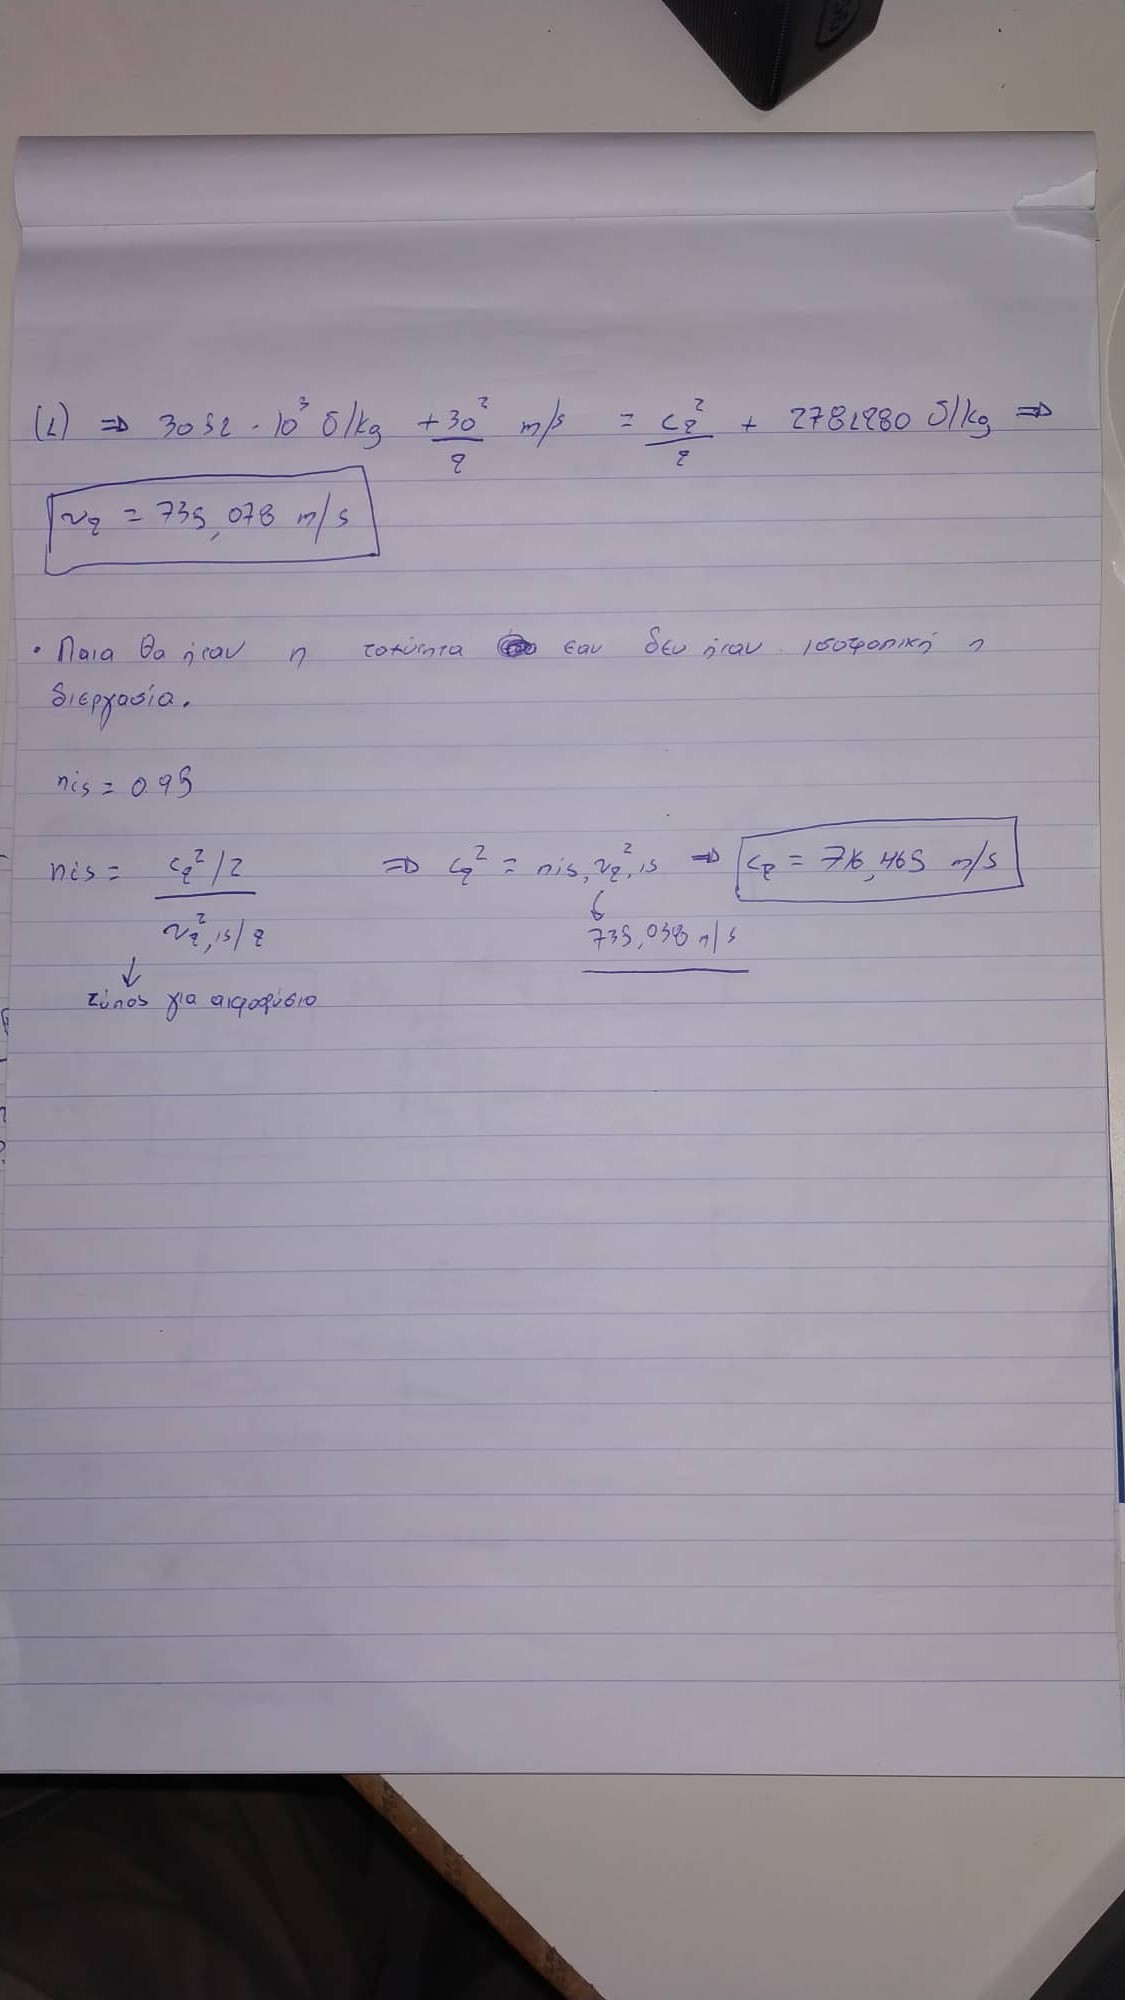 (1) ⇒ 3052 · 10³ J/kg + 30²/2 m/s = c₂²/2 + 2781280 J/kg ⇒
v₂ = 735,078 m/s
• Ποια θα ήταν η ταχύτητα εαν δεν ήταν ισοτροπική η
διεργασία.
nis = 0.95
nis = c₂²/2 / v₂²,is/2 ⇒ c₂² = nis, v₂²,is ⇒ c₂ = 716,465 m/s
735,058 m/s
τύπος για ακροφύσιο